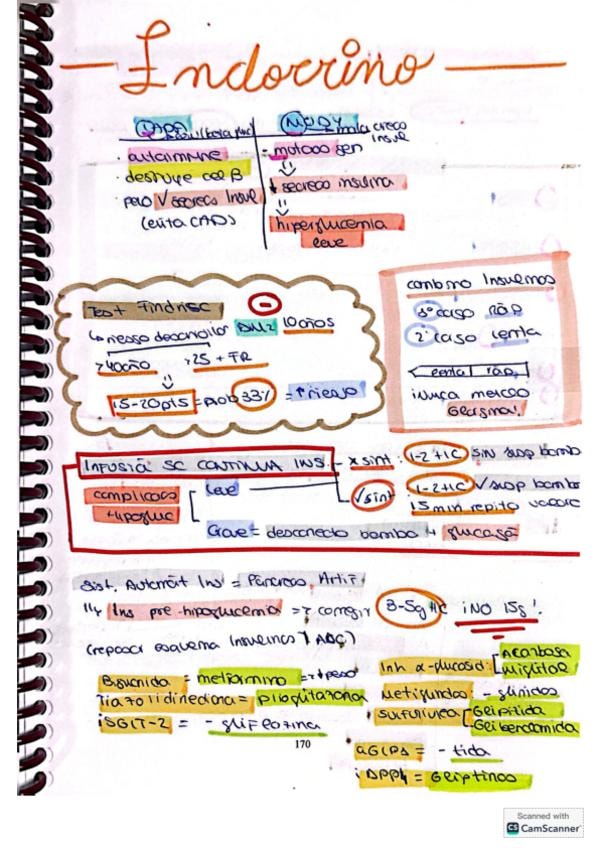 Endocrino
LADA
MODY → mala secrec insul
· autoinmune
· destruye cel β
· pero √ secrec Insul
(evita CAD)
- mutaco gen
↓ secreco insulina
hiperglucemia
leve
Test Findrisc
↳ riesgo desarrollar DM2 10 años
>40año >25 + FR
15-20pts = Prob 33% = ↑riesgo
combino Insulinas
1º cargo ráp
2º cargo lenta
lenta | ráp
¡Nunca mezclo
Glargina!
INFUSIÓ SC CONTÍNUA INS
x sint: 1-2 HC SIN susp bomba
√ sint 1-2 HC √ susp bomba
15 min repito valorac
complicacs
+ hipogluc
leve
Grave = desconecto bomba + glucagó
Sist. Automát Ins = Páncreas Artif
Ins pre-hipoglucemia => corregir 3-5g HC ¡NO 15g!
(repasar esquema Insulinas y ADO)
Biguanida = metformina => ↓peso
Tiazolidinediona = pioglitazona
iSGLT-2 = -glifozina
Inh α-glucosid: Acarbosa
Miglitol
Metiglinidas: -glinidas
Sulfunilurea Glipizida
Glibenclamida
aGLP1 = -tida
iDPP4 = Gliptinas
170
Scanned with
CS CamScanner